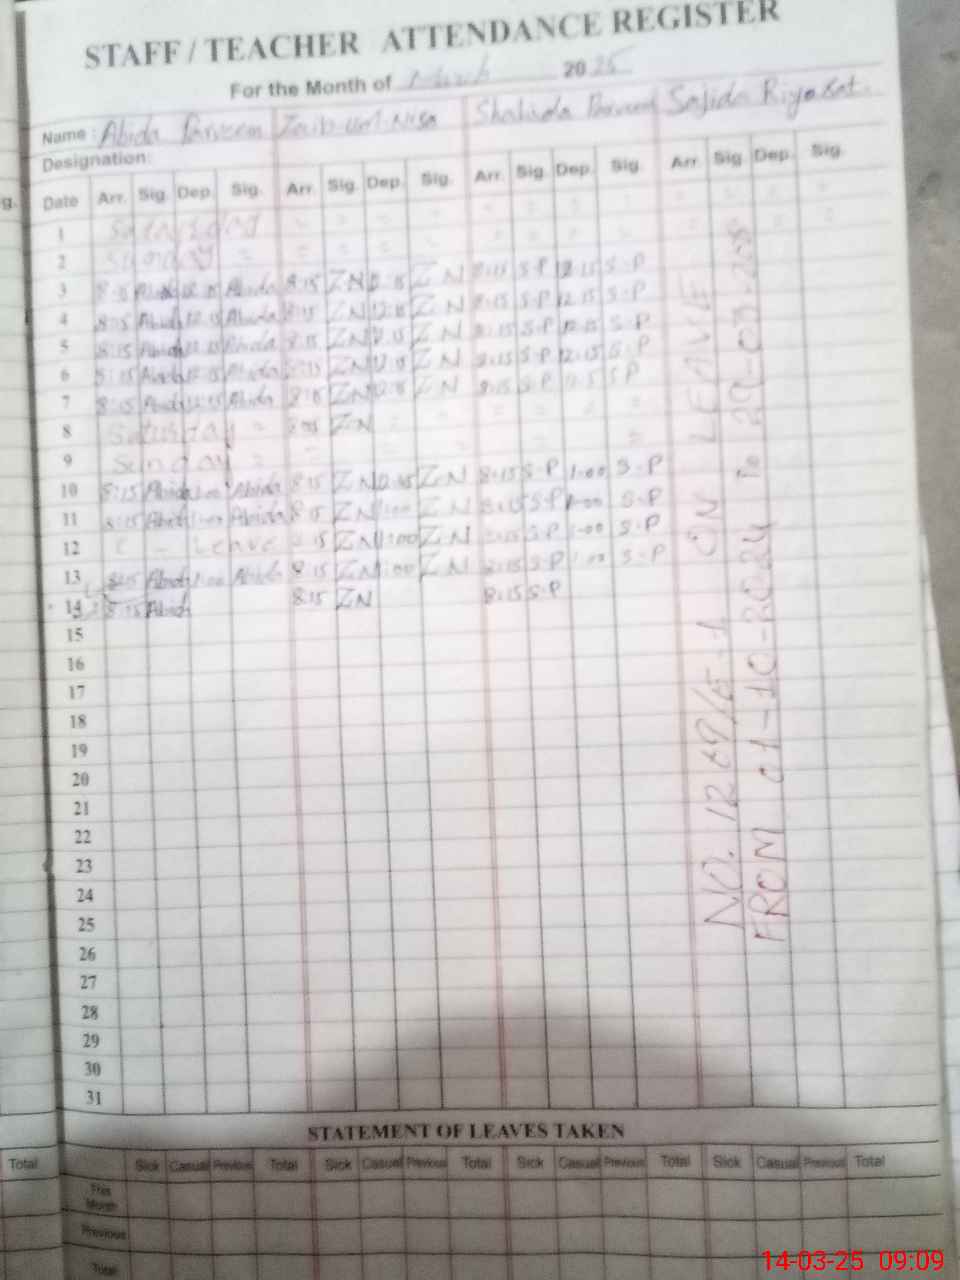 STAFF / TEACHER ATTENDANCE REGISTER
For the Month of March 2025
Name : Abida Parveen Zaib-un-Nisa Shahida Parveen Sajida Riyasat.
Designation:
g. Date Arr. Sig. Dep. Sig. Arr. Sig. Dep. Sig. Arr. Sig. Dep. Sig. Arr. Sig. Dep. Sig.
1 Saturday
2 Sunday
3 8:15 Abida 12:15 Abida 8:15 Z N 12:15 Z N 8:15 S-P 12:15 S-P
4 8:15 Abida 12:15 Abida 8:15 Z N 12:15 Z N 8:15 S-P 12:15 S-P
5 8:15 Abida 12:15 Abida 8:15 Z N 12:15 Z N 8:15 S-P 12:15 S-P
6 8:15 Abida 12:15 Abida 8:15 Z N 12:15 Z N 8:15 S-P 12:15 S-P
7 8:15 Abida 12:15 Abida 8:15 Z N Z N 8:15 S-P S P
8 Saturday = Z N
9 Sunday =
10 8:15 Abida 1:00 Abida 8:15 Z N Z N 8:15 S-P 1:00 S-P
11 8:15 Abida 1:00 Abida 8:15 Z N 1:00 Z N 8:15 S-P 1:00 S-P
12 Leave 8:15 Z N 1:00 Z N 8:15 S-P 1:00 S-P
13 8:15 Abida 1:00 Abida 8:15 Z N 1:00 Z N 8:15 S-P 1:00 S-P
14 8:15 Abida 8:15 Z N 8:15 S-P
15
16
17
18
19
20
21
22
23
24
25
26
27
28
29
30
31
ON LEAVE
FROM 01-10-2024 To
STATEMENT OF LEAVES TAKEN
Total Sick Casual Previous Total Sick Casual Previous Total Sick Casual Previous Total Sick Casual Previous Total
This Month
Previous
Total
14-03-25 09:09